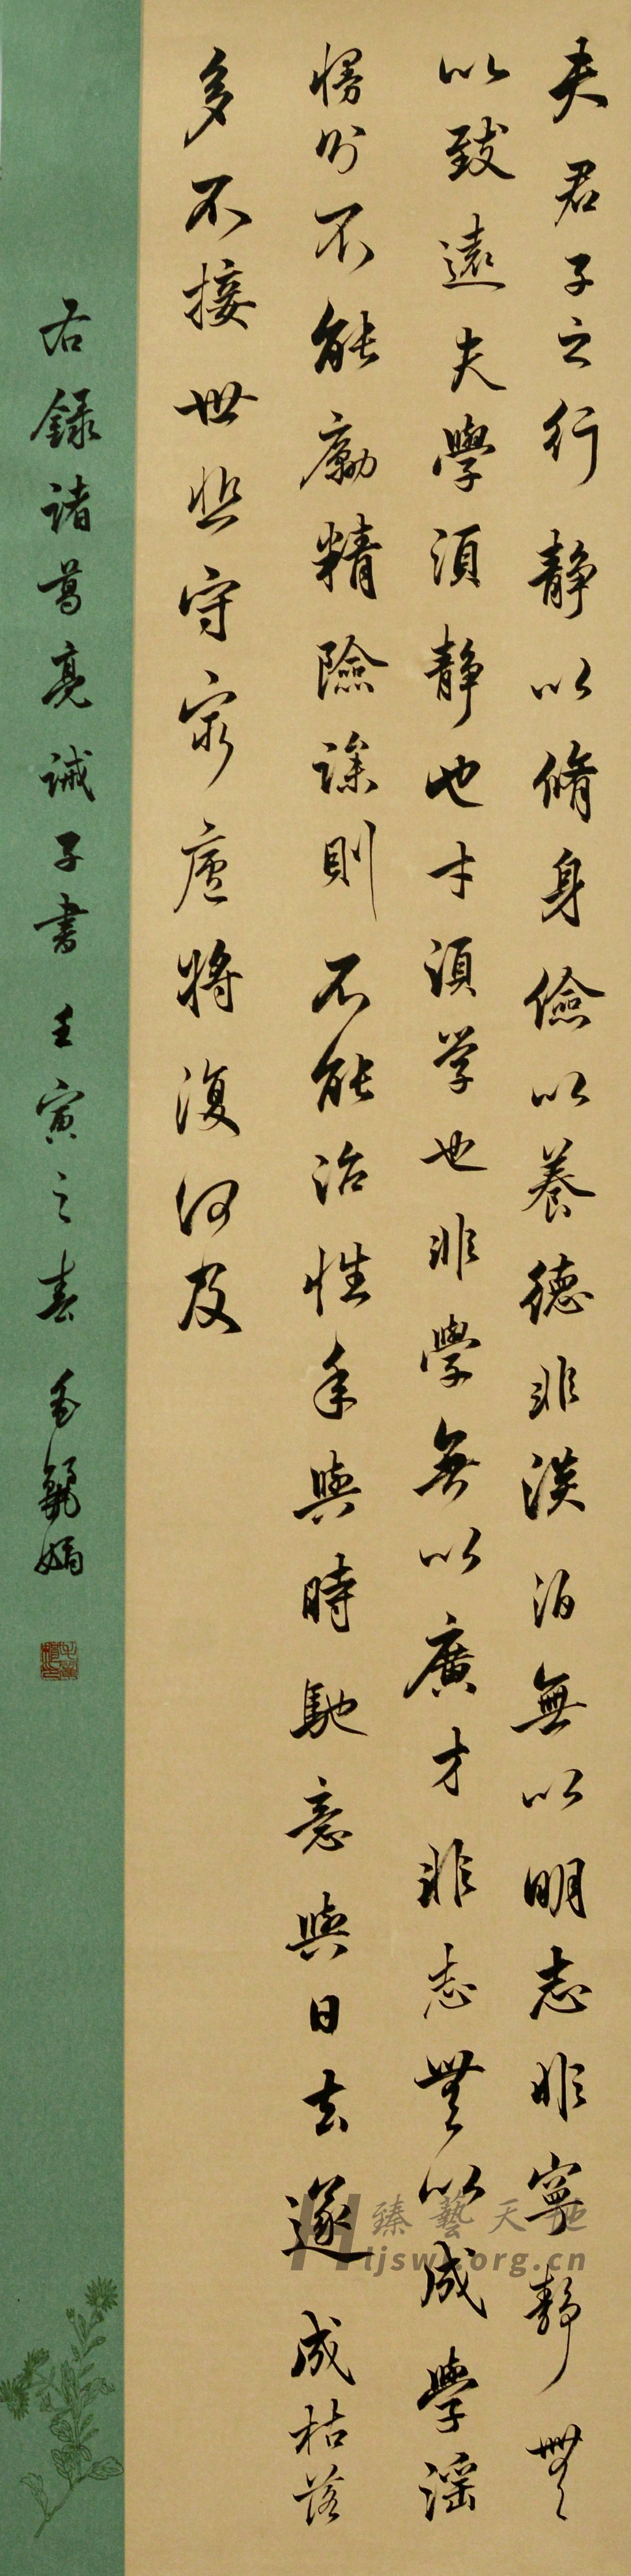 夫君子之行静以脩身儉以養德非淡泊無以明志非寧静無
以致遠夫學須静也才須学也非學無以廣才非志無以成學滛
慢則不能勵精險躁則不能治性年與時馳意與日去遂成枯落
多不接世悲守窮廬將復何及
右録諸葛亮诫子書 壬寅之春
臻藝天地